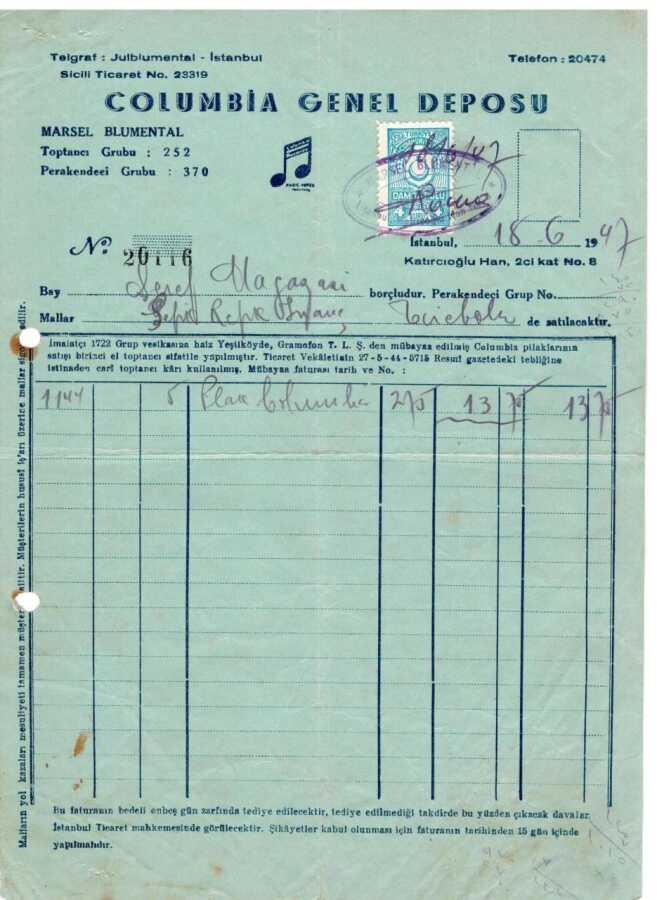 Telgraf : Julblumental - İstanbul
Telefon : 20474
Sicili Ticaret No. 23319
COLUMBİA GENEL DEPOSU
MARSEL BLUMENTAL
Toptancı Grubu : 252
Perakendeci Grubu : 370
18/6/47
DAMGA PULU
İstanbul, 18-6 1947
Katırcıoğlu Han, 2ci kat No. 8
No. 20116
Bay Şeref Magazasi borçludur. Perakendeci Grup No.
Mallar Şefik Refik Tirebolu de satılacaktır.
İmalatçı 1722 Grup vesikasına haiz Yeşilköyde, Gramofon T. L. Ş. den mübayaa edilmiş Columbia pilaklarının
satışı birinci el toptancı sıfatile yapılmıştır. Ticaret Vekâletinin 27-5-44-5715 Resmî gazetedeki tebliğine
istinaden carî toptancı kârı kullanılmış. Mübayaa faturası tarih ve No. :
1144 5 Plak Columbia 275 13 75 13 75
Malların yol kazaları mesuliyeti tamamen müşteriye aittir. Müşterilerin hususî iş'arı üzerine mallar sigorta edilir.
Bu faturanın bedeli onbeş gün zarfında tediye edilecektir, tediye edilmediği takdirde bu yüzden çıkacak davalar
İstanbul Ticaret mahkemesinde görülecektir. Şikâyetler kabul olunması için faturanın tarihinden 15 gün içinde
yapılmalıdır.